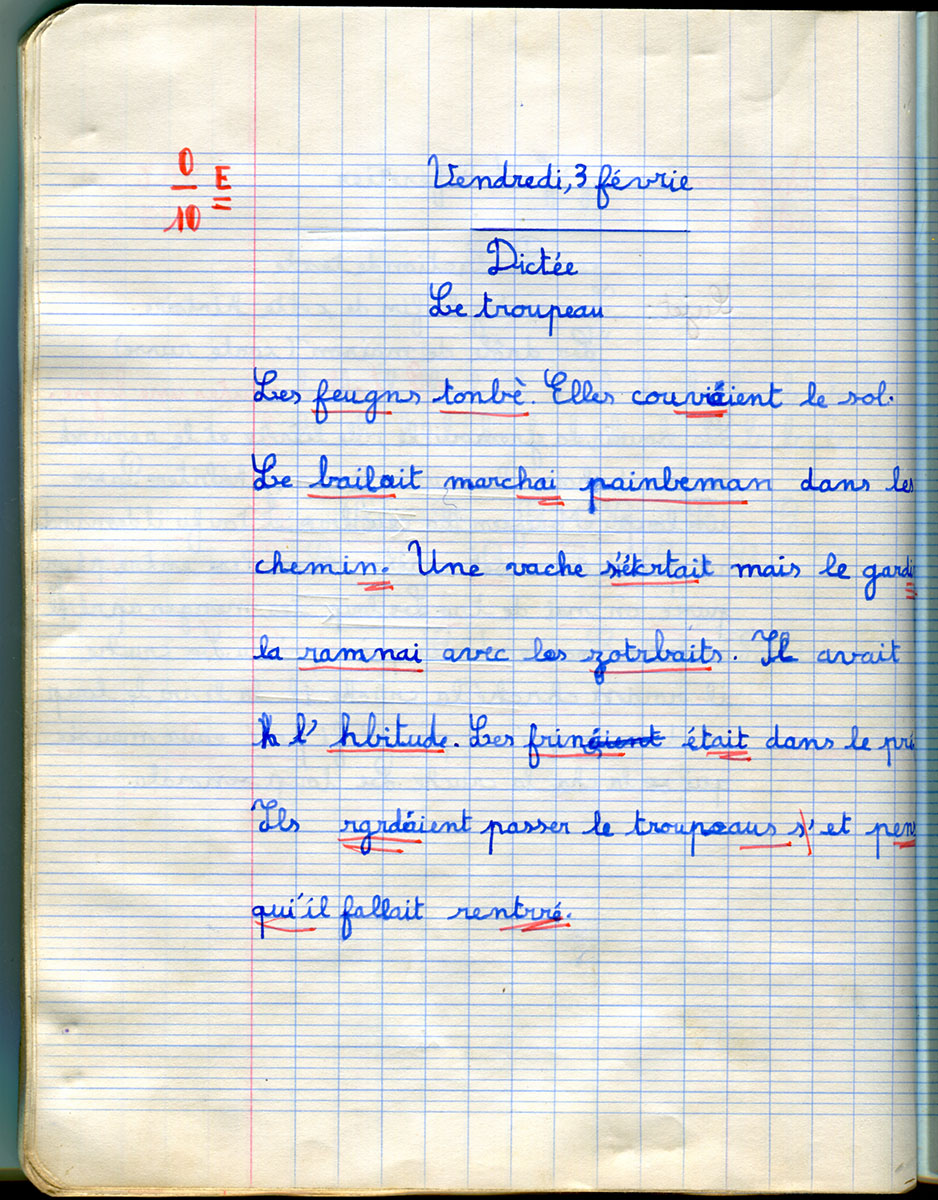 0
10
E
Vendredi, 3 févrie
Dictée
Le troupeau
Les feugns tonbè. Elles couvréient le sol.
Le bailait marchai painbeman dans les
chemin. Une vache s'ékrtait mais le gardi
la ramnai avec les zotrbaits. Il avait
l' hbitude. Les frinéient était dans le pri
Ils rgrdéient passer le troupeaus s' et pens
qui'il fallait rentrré.